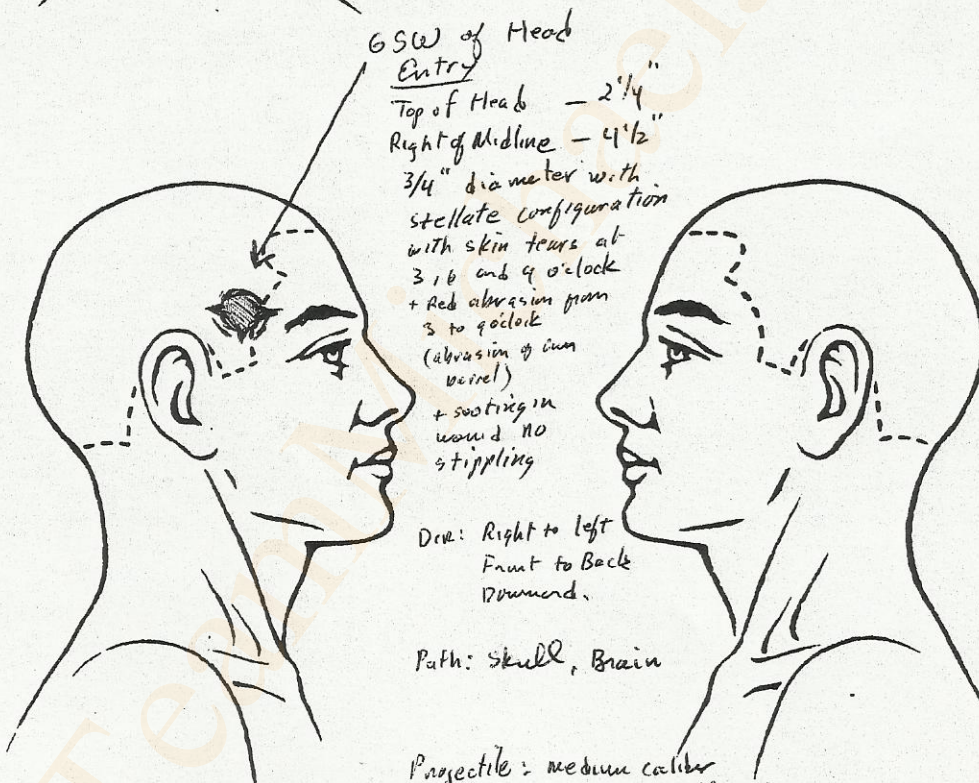 GSW of Head
Entry
Top of Head — 2 1/4"
Right of Midline — 4 1/2"
3/4" diameter with
stellate configuration
with skin tears at
3, 6 and 9 o'clock
+ Red abrasion from
3 to 9 o'clock
(abrasion of gun
barrel)
+ sooting in
wound no
stippling
Dir: Right to left
Front to Back
Downward.
Path: Skull, Brain
Projectile: medium caliber
TeamMichael